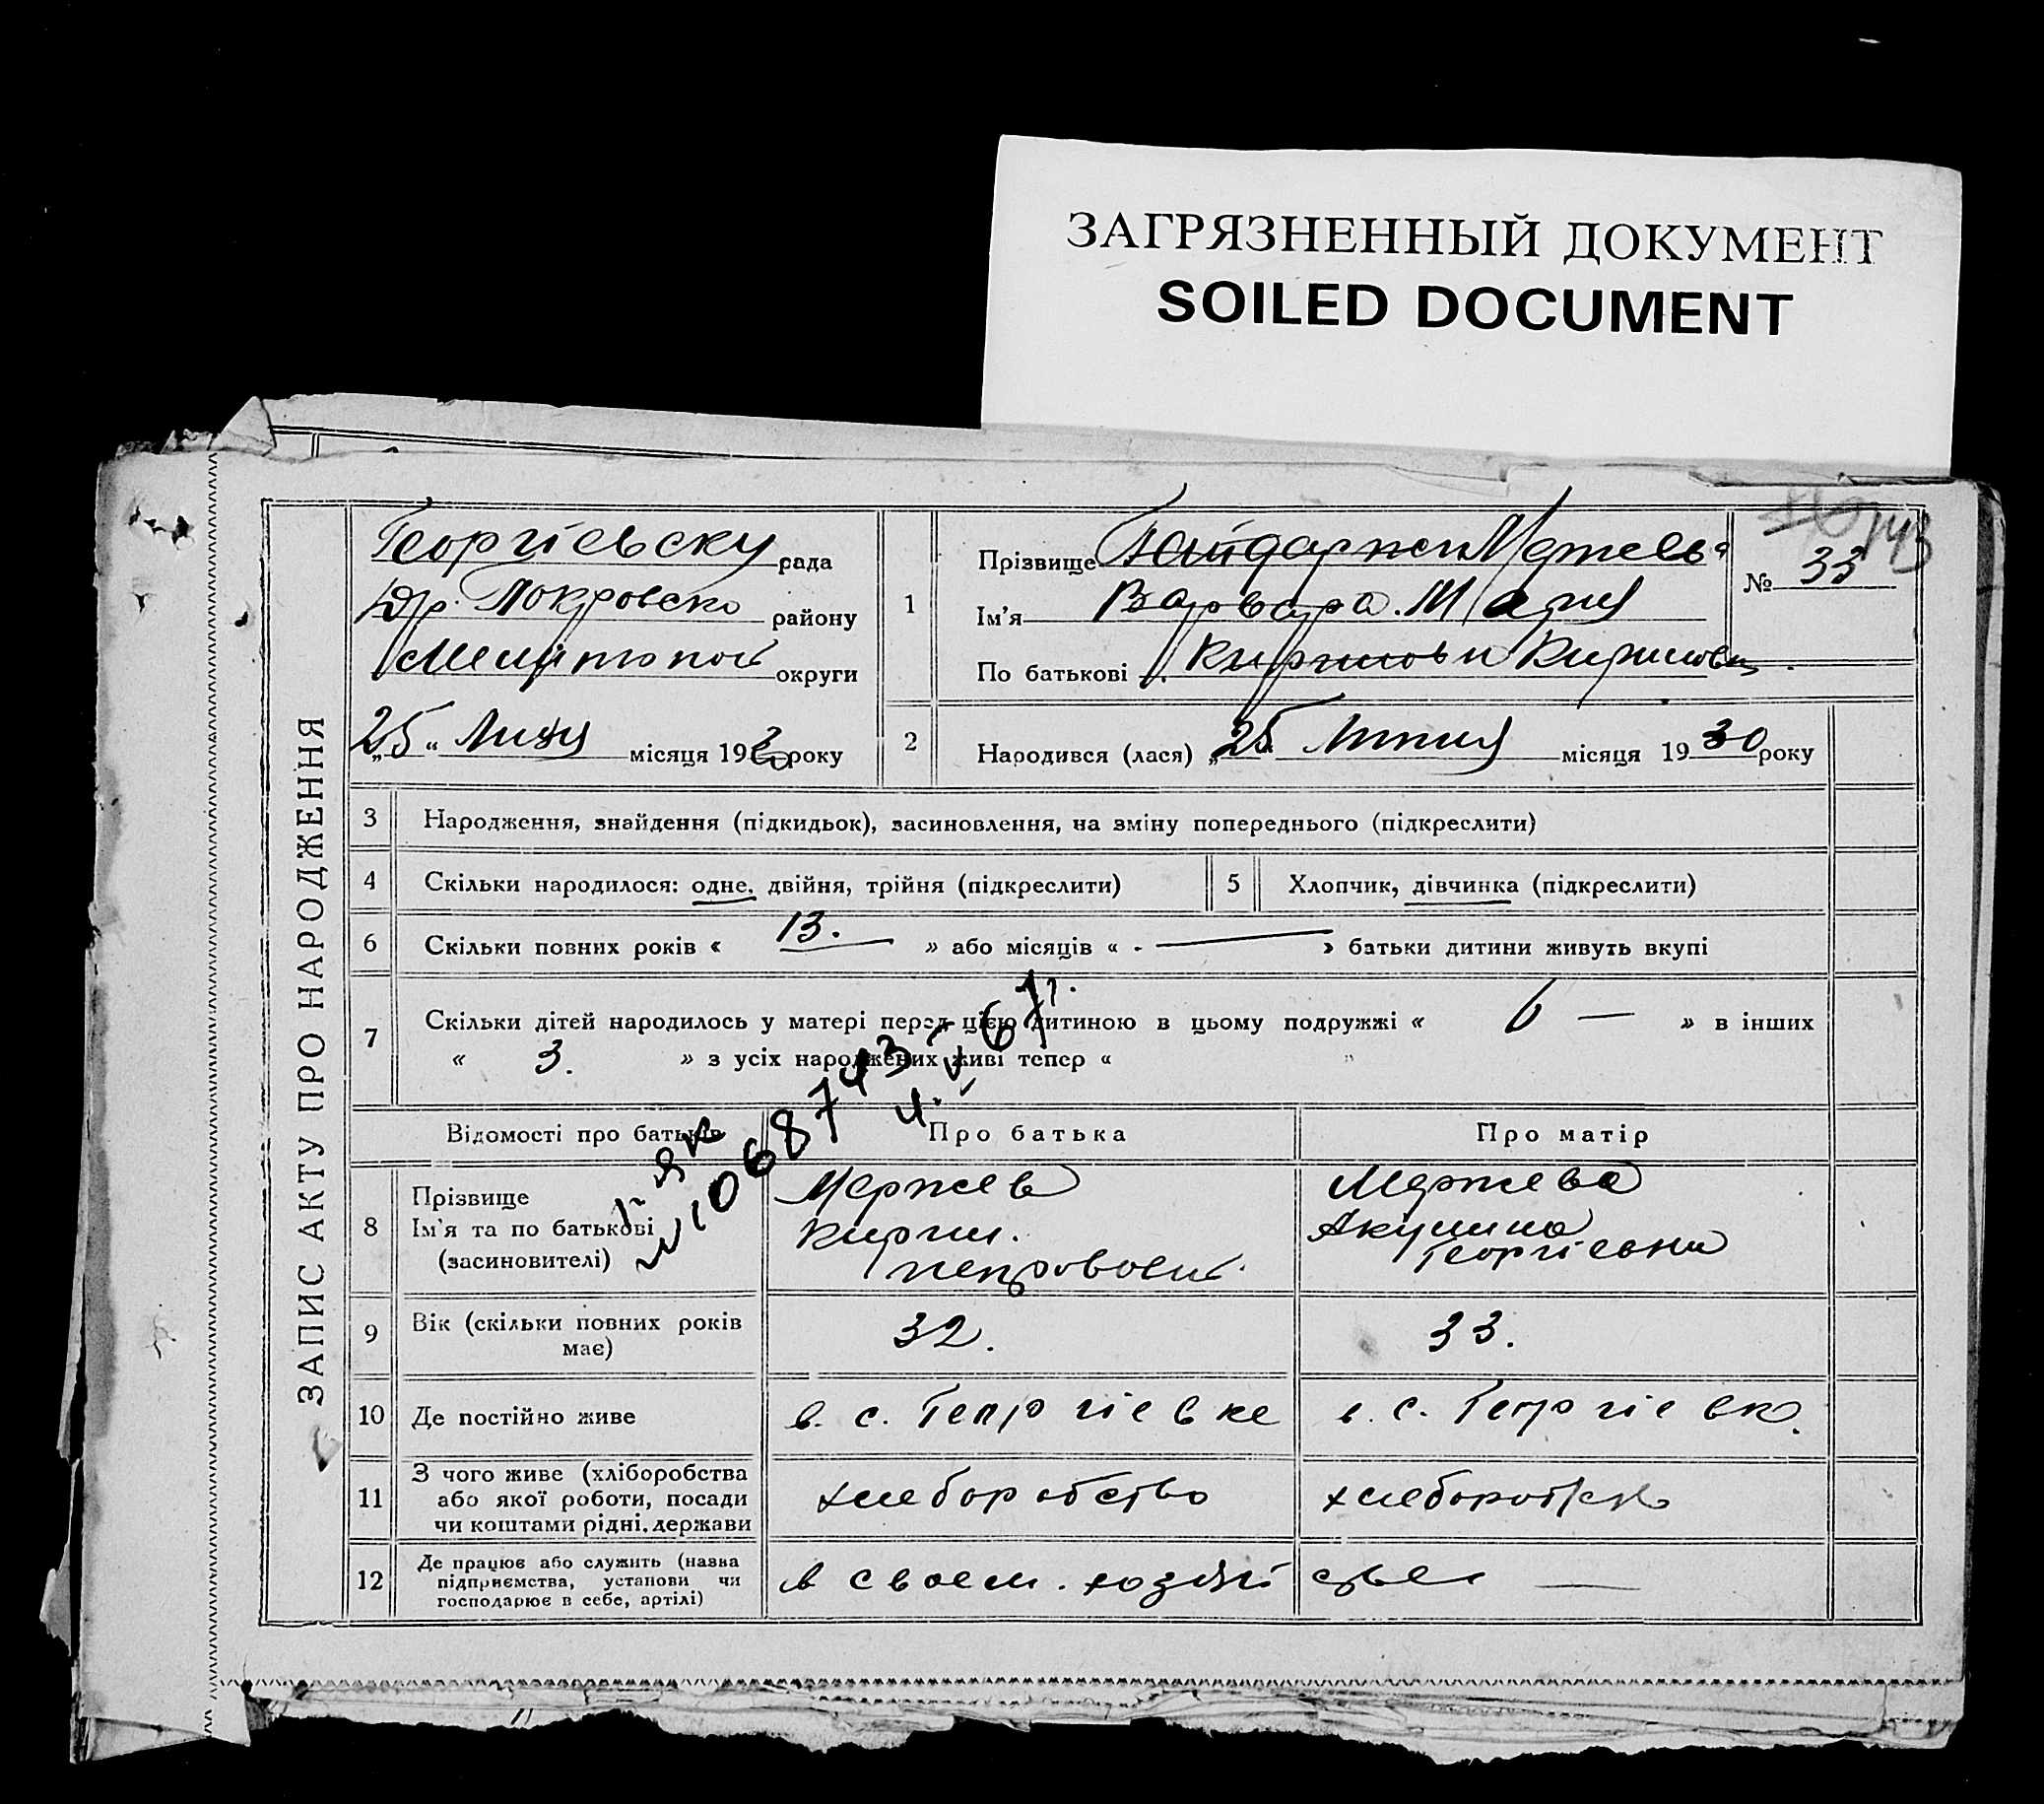 ЗАГРЯЗНЕННЫЙ ДОКУМЕНТ
SOILED DOCUMENT
ЗАПИС АКТУ ПРО НАРОДЖЕННЯ
Георгіевску рада
Покровско району
округи
25 " місяця 19 року
1
Прізвище
Ім'я Варвара. Мария
По батькові
№ 33
143
2
Народився (лася) „ 25 " місяця 19 30 року
3 Народження, знайдення (підкидьок), засиновлення, на зміну попереднього (підкреслити)
4 Скільки народилося: одне, двійня, трійня (підкреслити) 5 Хлопчик, дівчинка (підкреслити)
6 Скільки повних років « 13. » або місяців « - — » батьки дитини живуть вкупі
7 Скільки дітей народилось у матері перед цією дитиною в цьому подружжі « 6 — » в інших
« 3. » з усіх народжених живі тепер « »
1068743
Відомості про батьків Про батька Про матір
8 Прізвище
Ім'я та по батькові
(засновителі)
Кирил.
Петрович
Акулина
Георгіевна
9 Вік (скільки повних років має) 32. 33.
10 Де постійно живе в. с. Георгіевке в. с. Георгіевке
11 З чого живе (хліборобства або якої роботи, посади чи коштами рідні, держави хлеборобство
12 Де працює або служить (назва підприємства, установи чи господарює в себе, артілі) в своем.